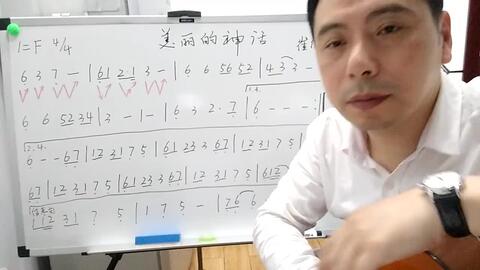 1=F 4/4 美丽的神话 崔
6 3 7 — | 61 2·1 3 — | 6 6 56 52 | 43 3 —
6 6 52 34 | 3 — 1 — | 6 3 2·7 | 6 — — — :
6 — — 67 | 12 31 7 5 | 61 23 3 67 | 12 31 7 5
67 | 12 31 7 5 | 61 23 3 67 | 12 31 7 5 | 612
112 31 7 5 | 1 7 5 — | 76 6